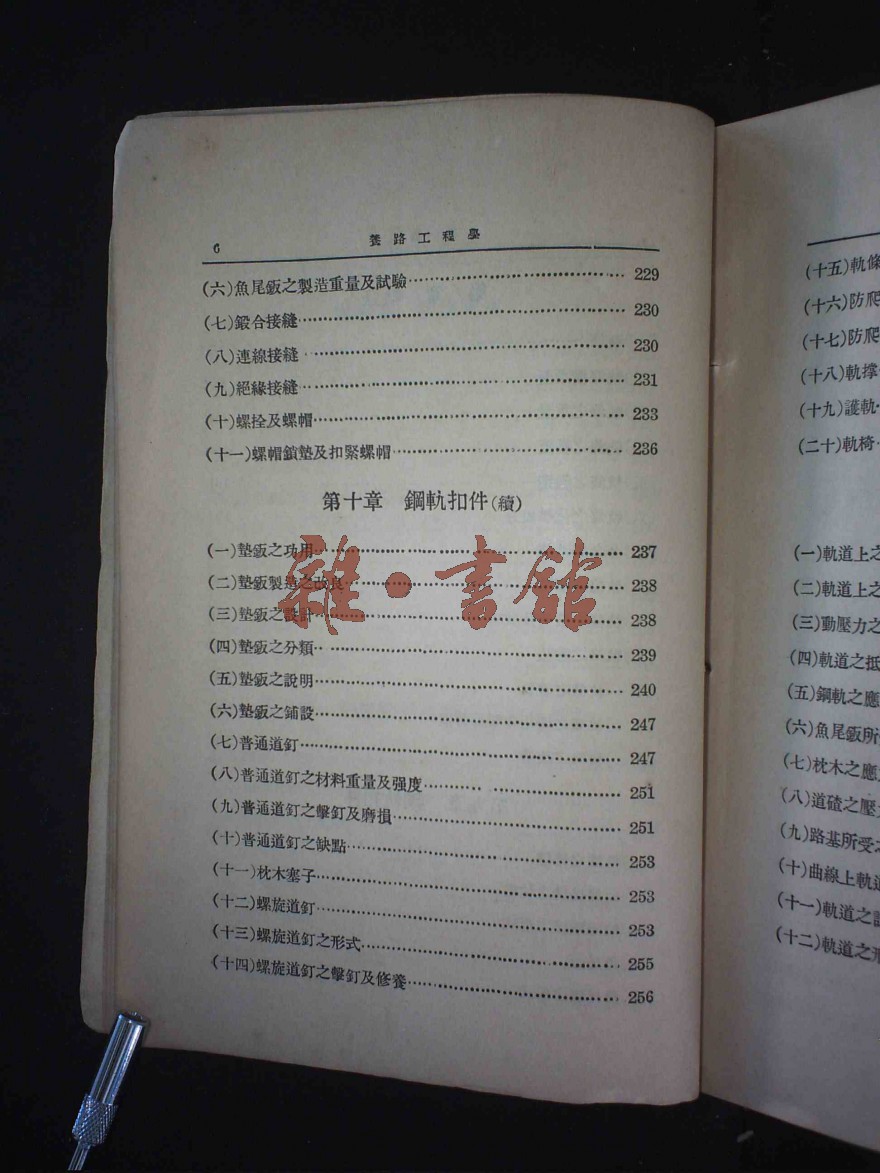 6 養路工程學
(六)魚尾鈑之製造重量及試驗 229
(七)鍛合接縫 230
(八)連線接縫 230
(九)絕緣接縫 231
(十)螺拴及螺帽 233
(十一)螺帽鎖墊及扣緊螺帽 236
第十章 鋼軌扣件(續)
(一)墊鈑之功用 237
(二)墊鈑製造之改良 238
(三)墊鈑之設計 238
(四)墊鈑之分類 239
(五)墊鈑之說明 240
(六)墊鈑之鋪設 247
(七)普通道釘 247
(八)普通道釘之材料重量及强度 251
(九)普通道釘之擊釘及磨損 251
(十)普通道釘之缺點 253
(十一)枕木塞子 253
(十二)螺旋道釘 253
(十三)螺旋道釘之形式 255
(十四)螺旋道釘之擊釘及修養 256
雜·書館
(十五)軌條
(十六)防爬
(十七)防爬
(十八)軌撐
(十九)護軌
(二十)軌椅
(一)軌道上之
(二)軌道上之
(三)動壓力之
(四)軌道之抵
(五)鋼軌之應
(六)魚尾鈑所
(七)枕木之應
(八)道碴之壓
(九)路基所受
(十)曲線上軌
(十一)軌道之
(十二)軌道之